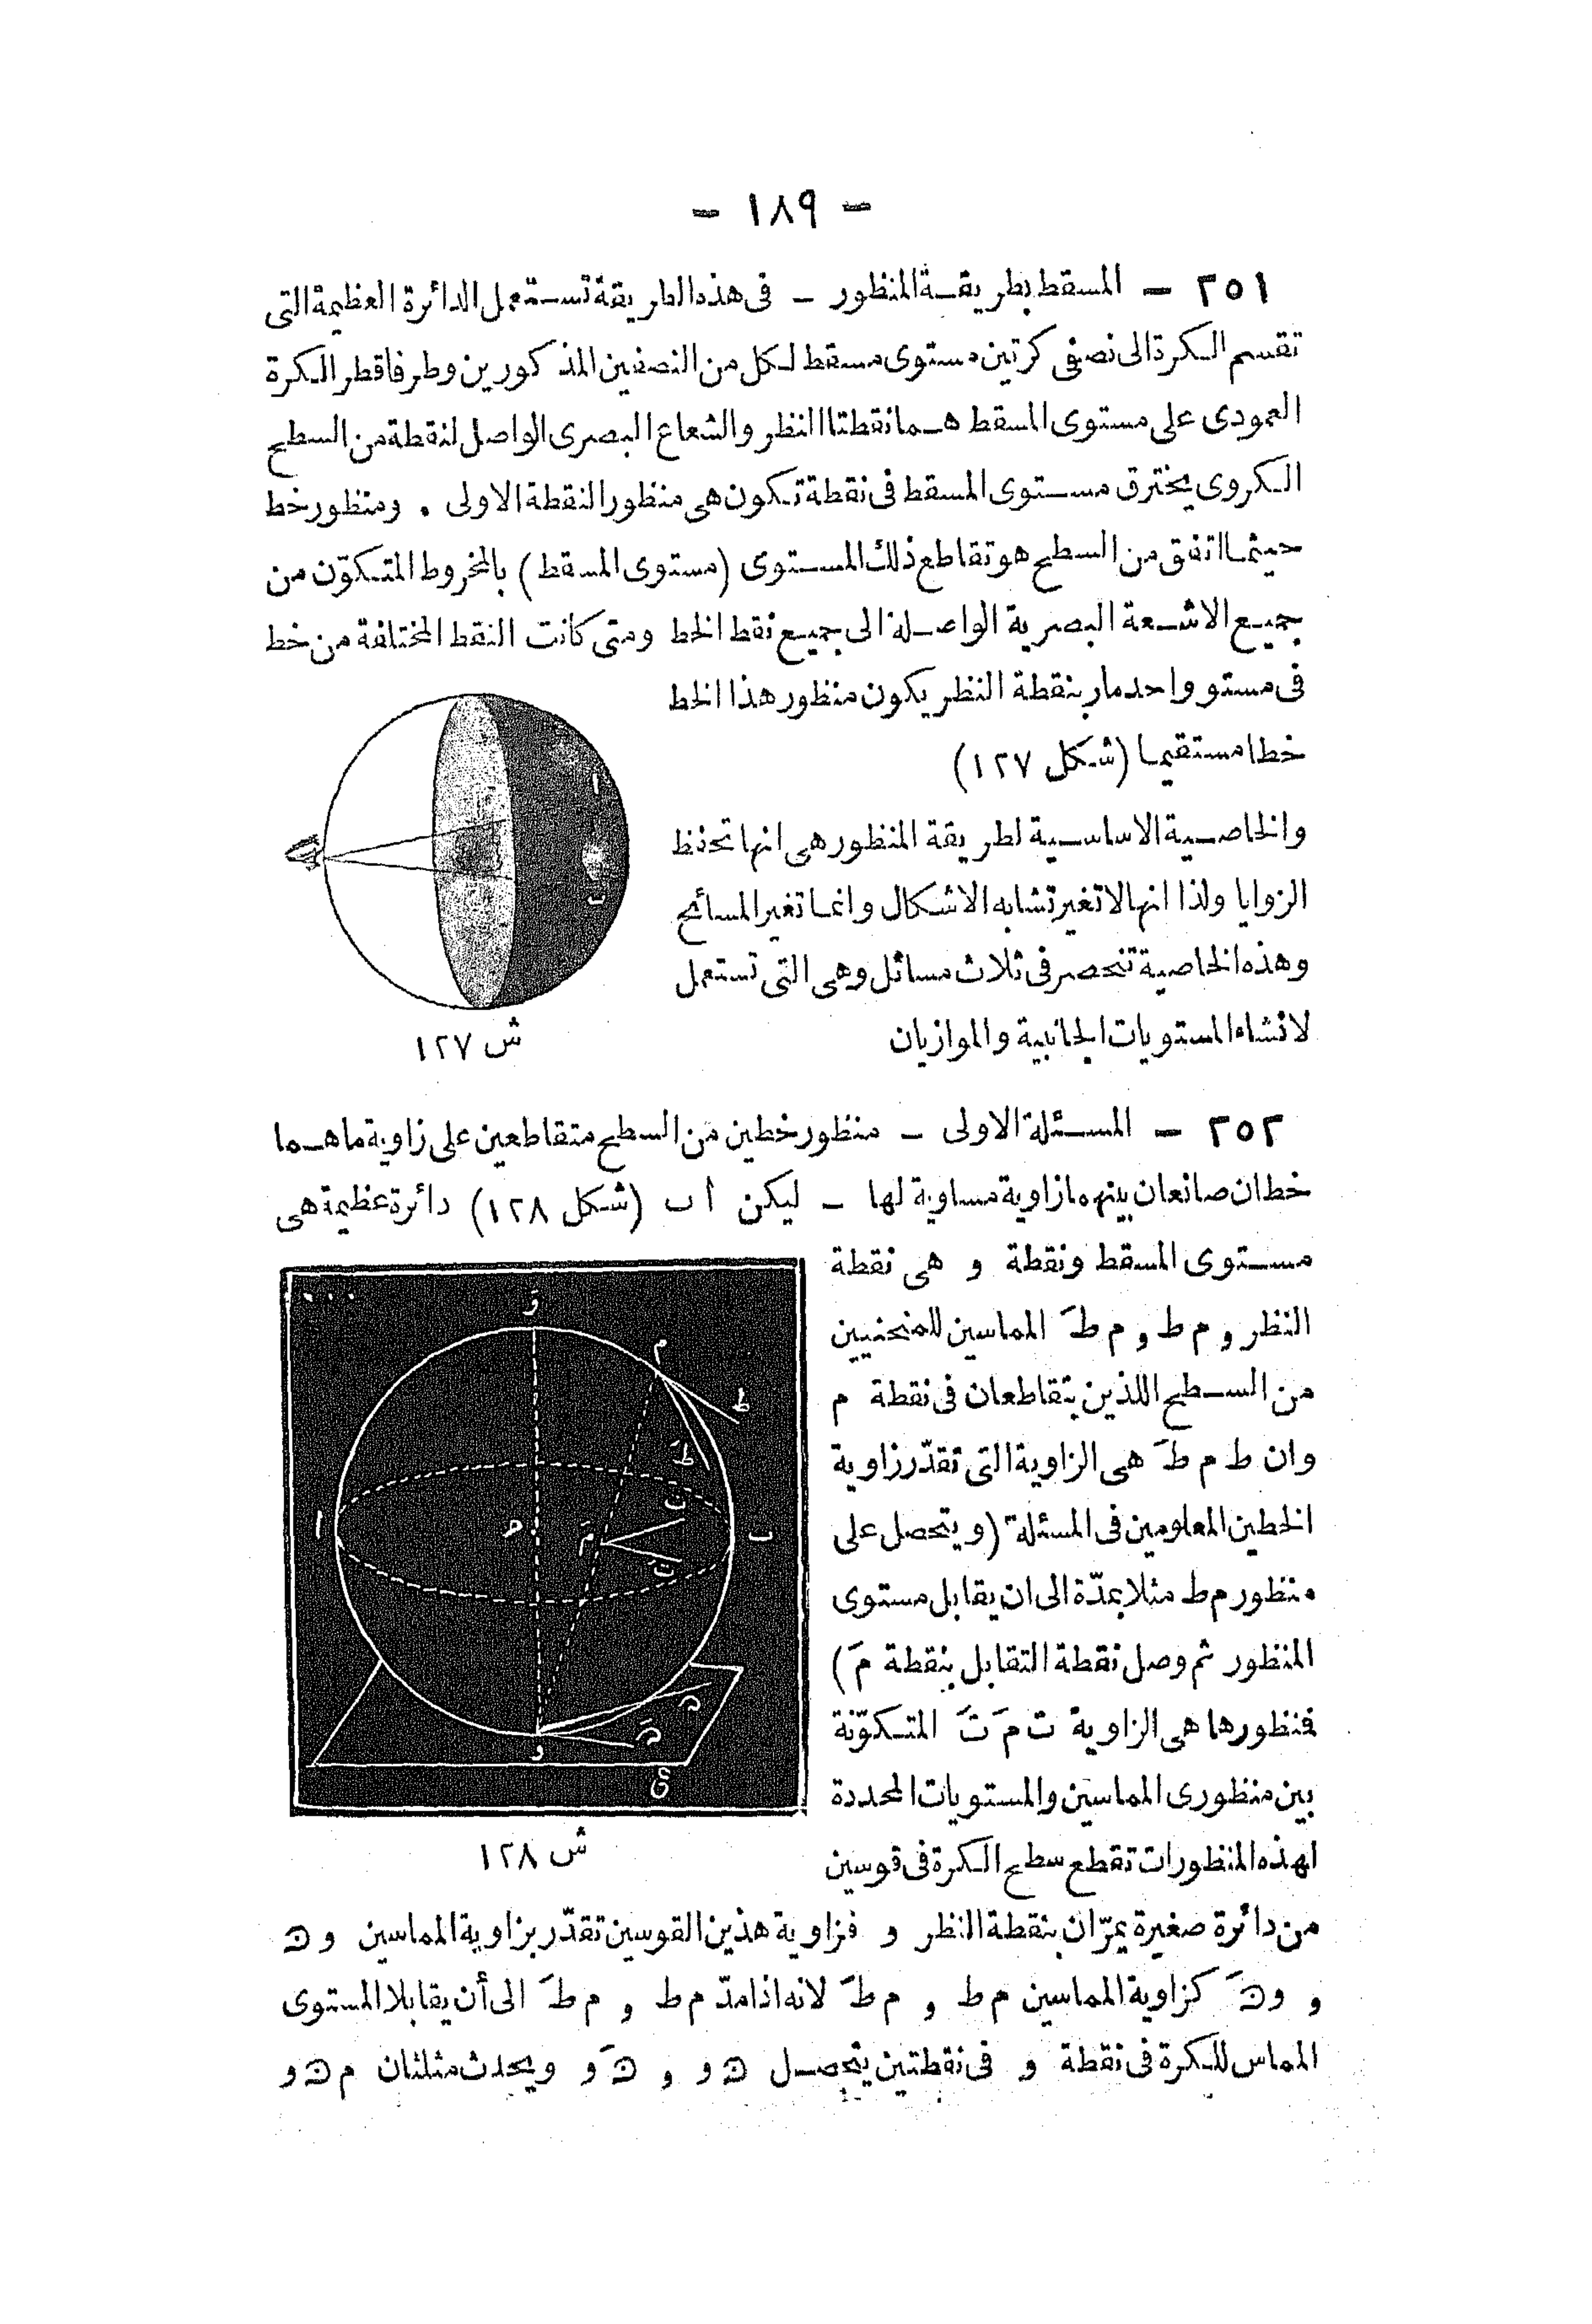 - ١٨٩ -
٢٥١ - المسقط بطريقة المنظور - فى هذه الطريقة تستعمل الدائرة العظيمة التى
تقسم الكرة الى نصفى كرتين مستوى مسقط لكل من النصفين المذكورين وطرفا قطر الكرة
العمودى على مستوى المسقط هما نقطتا النظر والشعاع البصرى الواصل لنقطة من السطح
الكروى يخترق مستوى المسقط فى نقطة تكون هى منظور النقطة الاولى . ومنظور خط
حيثما اتفق من السطح هو تقاطع ذلك المستوى (مستوى المسقط) بالمخروط المتكوّن من
جميع الاشعة البصرية الواصلة الى جميع نقط الخط ومتى كانت النقط المختلفة من خط
فى مستو واحد مار بنقطة النظر يكون منظور هذا الخط
خطا مستقيما (شكل ١٢٧)
والخاصية الاساسية لطريقة المنظور هى انها تحفظ
الزوايا ولذا انها لا تغير تشابه الاشكال وانما تغير المسائح
وهذه الخاصية تنحصر فى ثلاث مسائل وهى التى تستعمل
لانشاء المستويات الجانبية والموازيان
ا
ب
ش ١٢٧
٢٥٢ - المسئلة الاولى - منظور خطين من السطح متقاطعين على زاوية ما هما
خطان صانعان بينهما زاوية مساوية لها - ليكن أ ب (شكل ١٢٨) دائرة عظيمة هى
مستوى المسقط ونقطة و هى نقطة
النظر و م ط و م طَ المماسين للمنحنيين
من السطح اللذين يتقاطعان فى نقطة م
وان ط م طَ هى الزاوية التى تقدّر زاوية
الخطين المعلومين فى المسئلة (ويتحصل على
منظور م ط مثلا بمدّة الى ان يقابل مستوى
المنظور ثم وصل نقطة التقابل بنقطة مَ)
فنظورها هى الزاوية ت مَ تَ المتكوّنة
بين منظورى المماسين والمستويات المحددة
لهذه المنظورات تقطع سطح الكرة فى قوسين
وَ
م
ط
طَ
ت
ا
ح
مَ
ب
تَ
و
ى
ش ١٢٨
من دائرة صغيرة يمرّان بنقطة النظر و فزاوية هذين القوسين تقدّر بزاوية المماسين و ں
و و ںَ كزاوية المماسين م ط و م طَ لانه اذا مدّ م ط و م طَ الى أن يقابلا المستوى
المماس للكرة فى نقطة و فى نقطتين يتحصل ں و و ںَ و ويحدث مثلثان م ں و